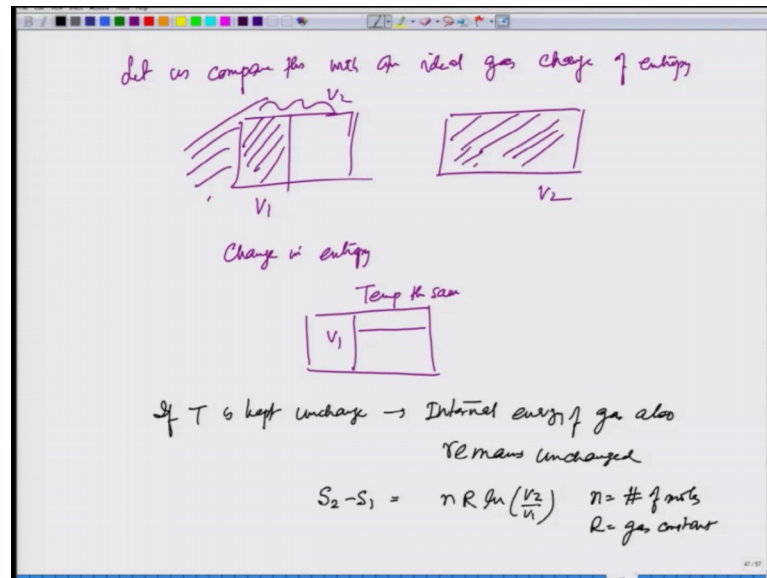 Let us compare this with an ideal gas change of entropy
V2
V1
V2
Change in entropy
Temp the same
V1
If T is kept unchange → Internal energy of gas also
remains unchanged
S2-S1 = nR ln(V2/V1) n= # of mols
R= gas constant
47/57